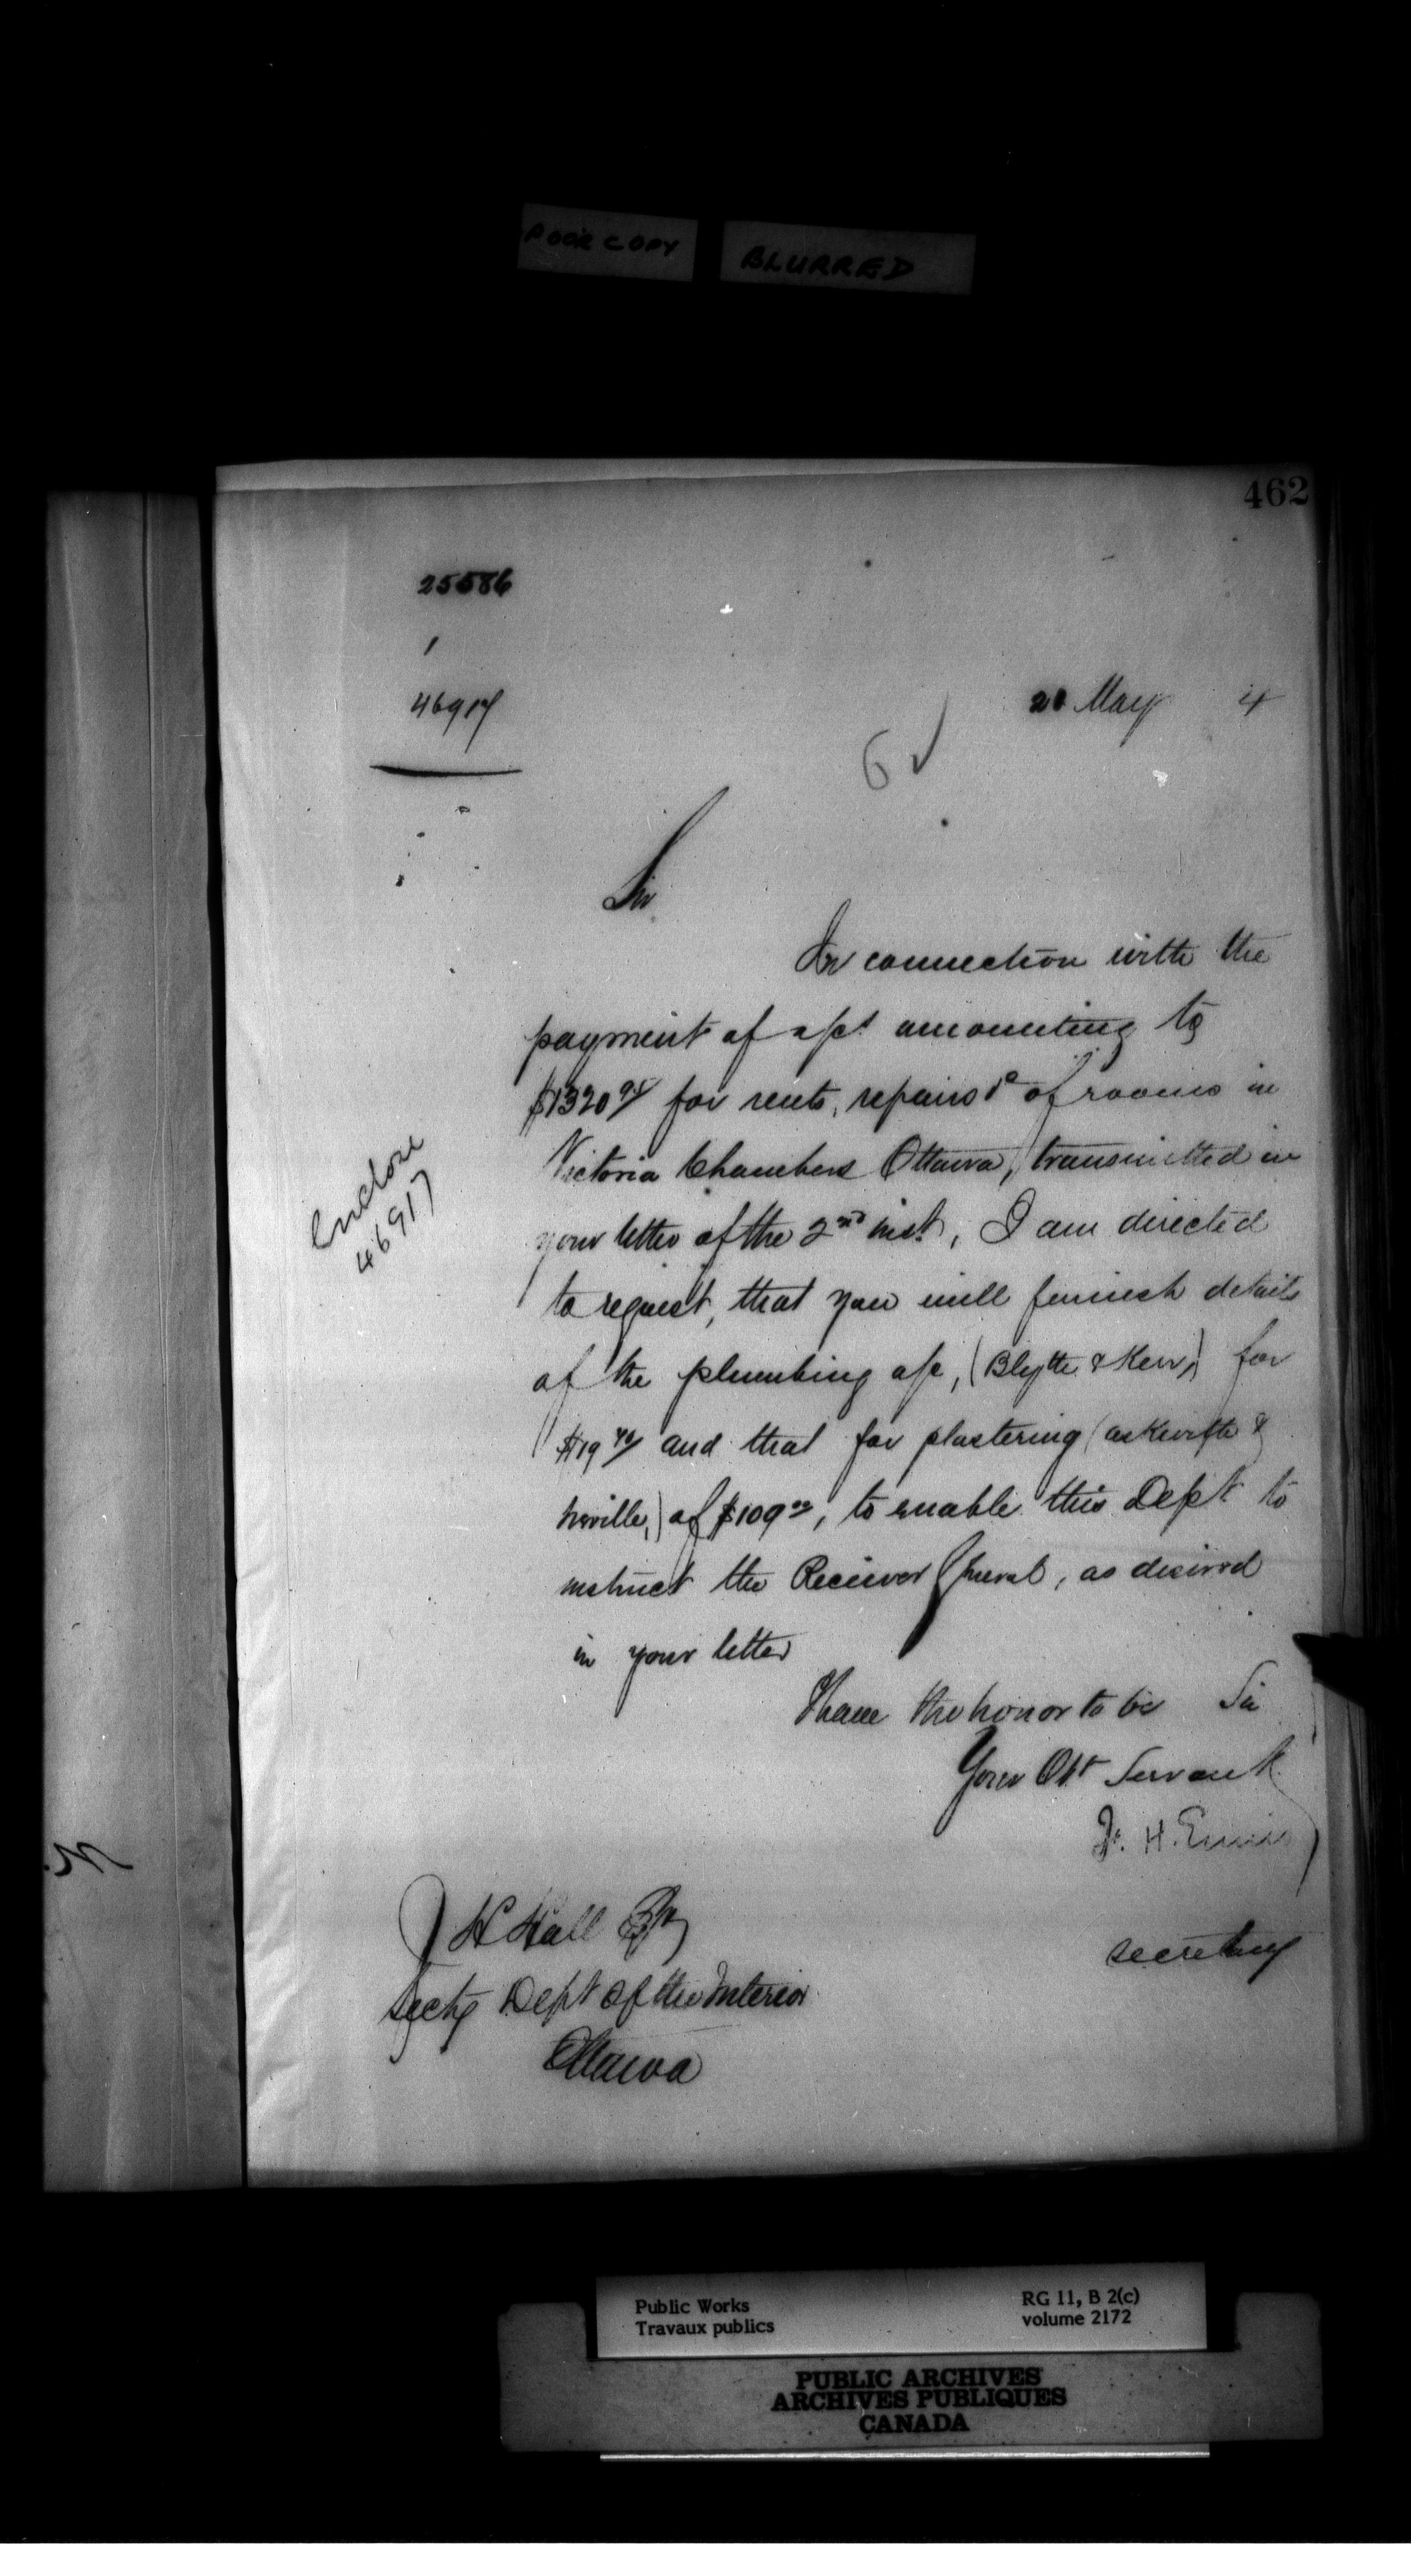 POOR COPY BLURRED
462
25586
46917
20 May 4
6 ✓
Sir
In connection with the
payment of a/cs amounting to
$1320 94/ for rents, repairs &c of rooms in
Victoria Chambers Ottawa, transmitted in
Enclose
46917
your letter of the 2nd inst, I am directed
to request, that you will furnish details
of the plumbing a/c, (Blythe & Kerr,) for
$19 40/ and that for plastering (askwith &
) of $109 00, to enable this Dept to
instruct the Receiver General, as desired
in your letter
I have the honor to be Sir
Your Obt Servant
H. Ennis
J H Hall Esq
secretary
Secty Dept of the Interior
Ottawa
Public Works
Travaux publics
RG 11, B 2(c)
volume 2172
PUBLIC ARCHIVES
ARCHIVES PUBLIQUES
CANADA